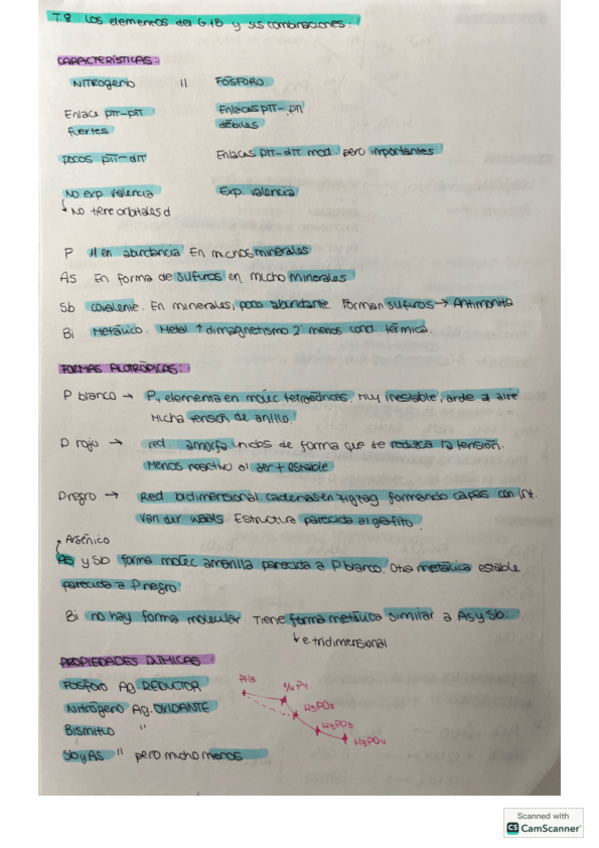 T.8 Los elementos del G.15 y sus combinaciones.
CARACTERÍSTICAS:
NITRÓgeno || FÓSFORO
Enlace pπ-pπ fuertes
Enlaces pπ-pπ débiles
pocos pπ-dπ
Enlaces pπ-dπ mod. pero importantes
No exp valencia
Exp. valencia
↳ No tiene orbitales d
P 11 en abundancia En muchos minerales
As En forma de sulfuros en mucho minerales
Sb covalente. En minerales, poco abundante Forman sulfuros → Antimonita
Bi Metálico. Metal ↑ dimagnetismo 2º menos cond. térmica.
FORMAS ALOTRÓPICAS:
P blanco → P4 elementa en moléc tetraédricas. Muy inestable, arde al aire
Mucha tensión de anillo.
P rojo → red amorfa unidos de forma que se reduzca la tensión.
Menos reactivo al ser + estable
P negro → Red bidimensional cadenas en zigzag formando capas con int.
Van der Waals Estructura parecida al grafito.
Arsénico
As y Sb forma moléc amarilla parecida a P blanco. Otra metálica estable
parecida a P negro.
Bi no hay forma molecular. Tiene forma metálica similar a As y Sb.
↳ e tridimensional
PROPIEDADES QUÍMICAS
FÓSFORO Ag. REDUCTOR
Nitrógeno Ag. OXIDANTE
Bismuto "
Sb y AS " pero mucho menos
PH3
1/4 P4
H3PO2
H3PO3
H3PO4
Scanned with
CS CamScanner